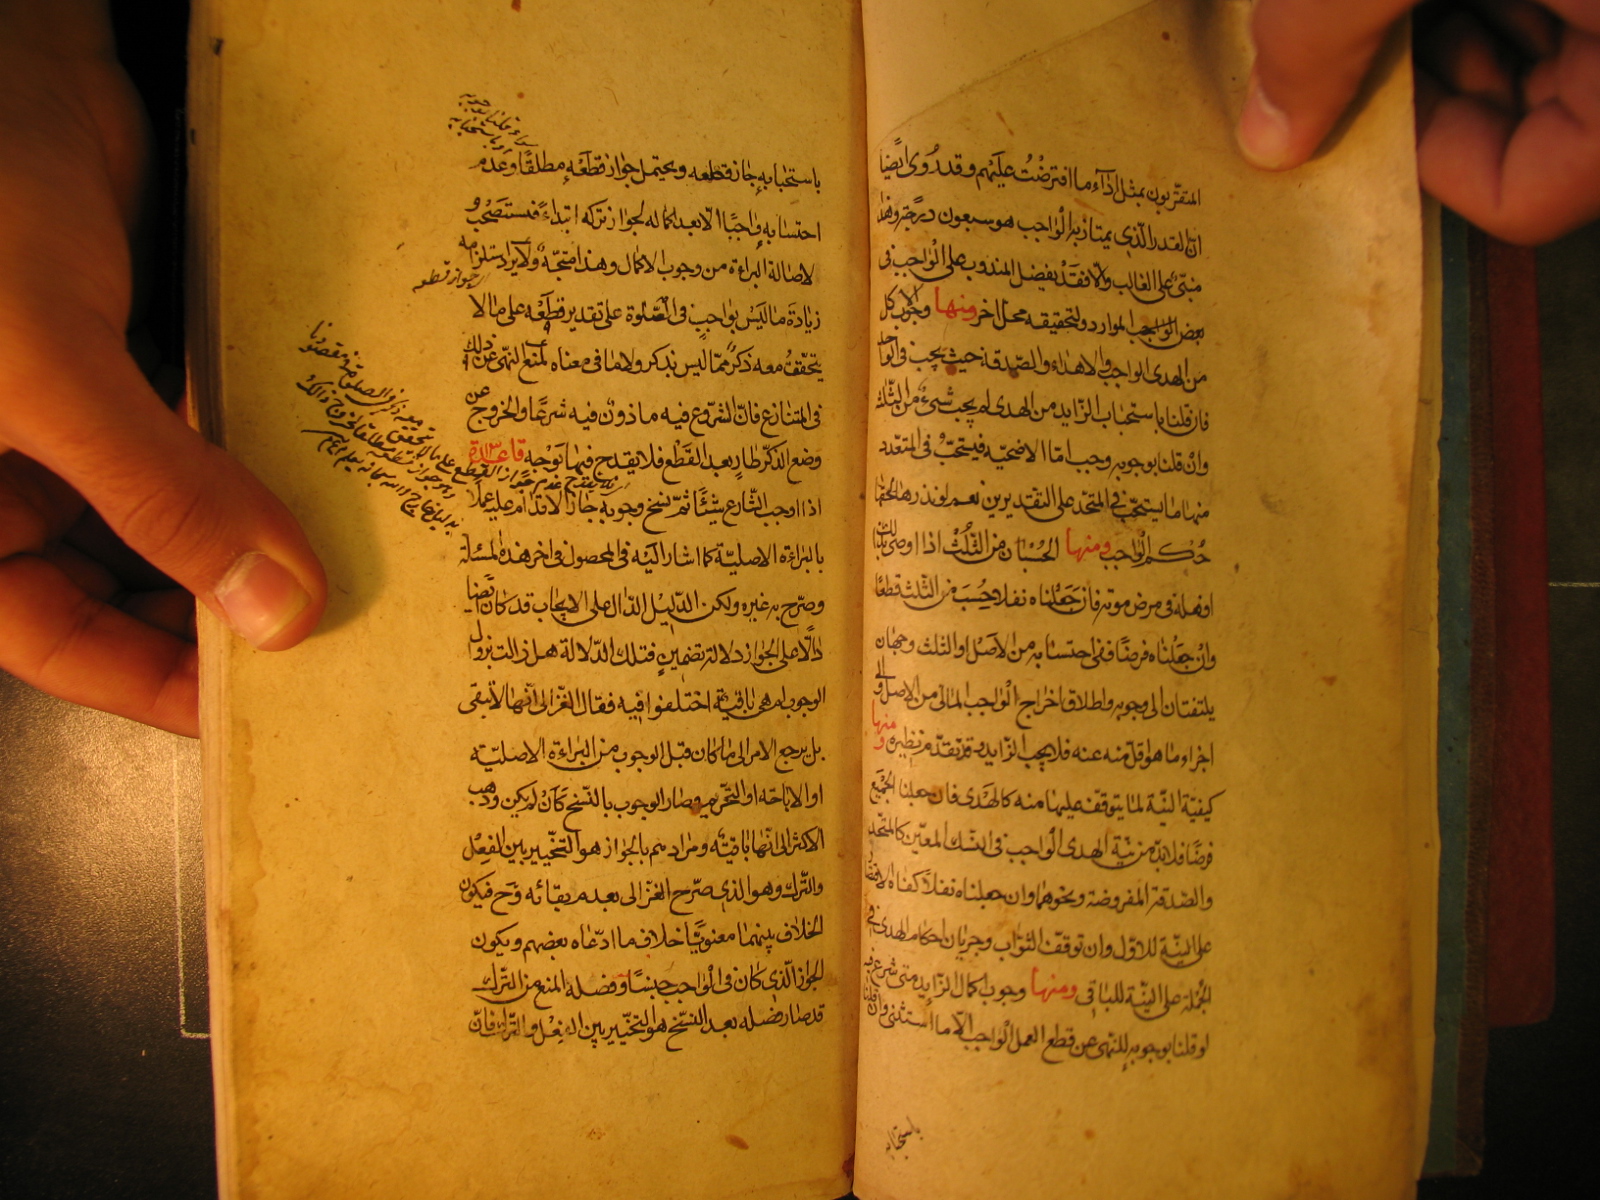 المتقربون بمثل اداء ما افترضت عليهم وقد روى ايضا
ان القدر الذي يمتاز به الواجب هو سبعون درجة وهذا
مبنى على الغالب والا فقد يفضل المندوب على الواجب في
بعض المواردو لتحقيقه محل اخر ومنها وجوب الاكل
من الهدى الواجب والاهداء والصدقة حيث يجب في الواحد
فان قلنا باستحباب الزايد من الهدى لم يجب شىء من الثلث
وان قلنا بوجوبه وجب اما الاضحية فيستحب في المتعدد
منها ما يستحب في المتحد على التقديرين نعم لو نذرها لحقها
حكم الواجب ومنها الحسبان من الثلث اذا اوصى بذلك
او فعله في مرض موته فان جعلناه نفلا حسب من الثلث قطعا
وان جعلناه فرضا ففي احتسابه من الاصل او الثلث وجهان
يلتفتان الى وجوبه واطلاق اخراج الواجب المالى من الاصل والى
اجزاء ما هو اقل منه عنه فلا يجب الزايد وقد تقدم نظيره ومنها
كيفية النية لما يتوقف عليها منه كالهدى فان جعلنا الجميع
فرضا فلابد من نية الهدى الواجب في النسك المعين كالمتحد
والصدقة المفروضة ونحوهما وان جعلناه نفلا كفاه الاقتصار
على النية للاول وان توقف الثواب وجريان احكام الهدى في
الجملة على النية للباقى ومنها وجوب اكمال الزايد متى شرع فيه
لو قلنا بوجوبه للنهى عن قطع العمل الواجب الا ما استثنى وان قلنا
باستحبابه
سواء قلنا بوجوبه
او باستحبابه
باستحبابه جاز قطعه ويحتمل جواز قطعه مطلقا وعدم
احتسابه واجبا الا بعد اكماله لجواز تركه ابتداء فيستصحب و
لاصالة البراءة من وجوب الاكمال وهذا متجه ولا يرد استلزامه
جواز قطعه
زيادة ما ليس بواجب في الصلوة على تقدير قطعه على ما لا
يتحقق معه ذكر مما ليس بذكر ولا ما في معناه لمنع النهى عن ذلك
في المتنازع فان الشروع فيه ماذون فيه شرعا والخروج عن
وضع الذكر طار بعد القطع فلا يقدح فيما توجه قاعدة
اذا اوجب الشارع شيئا ثم نسخ وجوبه جاز الاقدام عليه عملا
بالبراءة الاصلية كما اشار اليه في المحصول في اخر هذه المسئلة
وصرح به غيره ولكن الدليل الدال على الايجاب قد كان ايضا
دالا على الجواز دلالة تضمن فتلك الدلالة هل زالت بزوال
الوجوب ام هى باقية اختلفوا فيه فقال الغزالى انها لا تبقى
بل يرجع الامر الى ما كان قبل الوجوب من البراءة الاصلية
او الاباحة او التحريم وصار الوجوب بالنسخ كان لم يكن وذهب
الاكثر الى انها باقية ومرادهم بالجواز هو التخيير بين الفعل
والترك وهو الذى صرح الغزالى بعدم بقائه وح فيكون
الخلاف بينهما معنويا خلاف ما ادعاه بعضهم ويكون
الجواز الذى كان في الواجب جنسا وفصله المنع من الترك
قد صار فصله بعد النسخ هو التخيير بين الفعل والترك فان